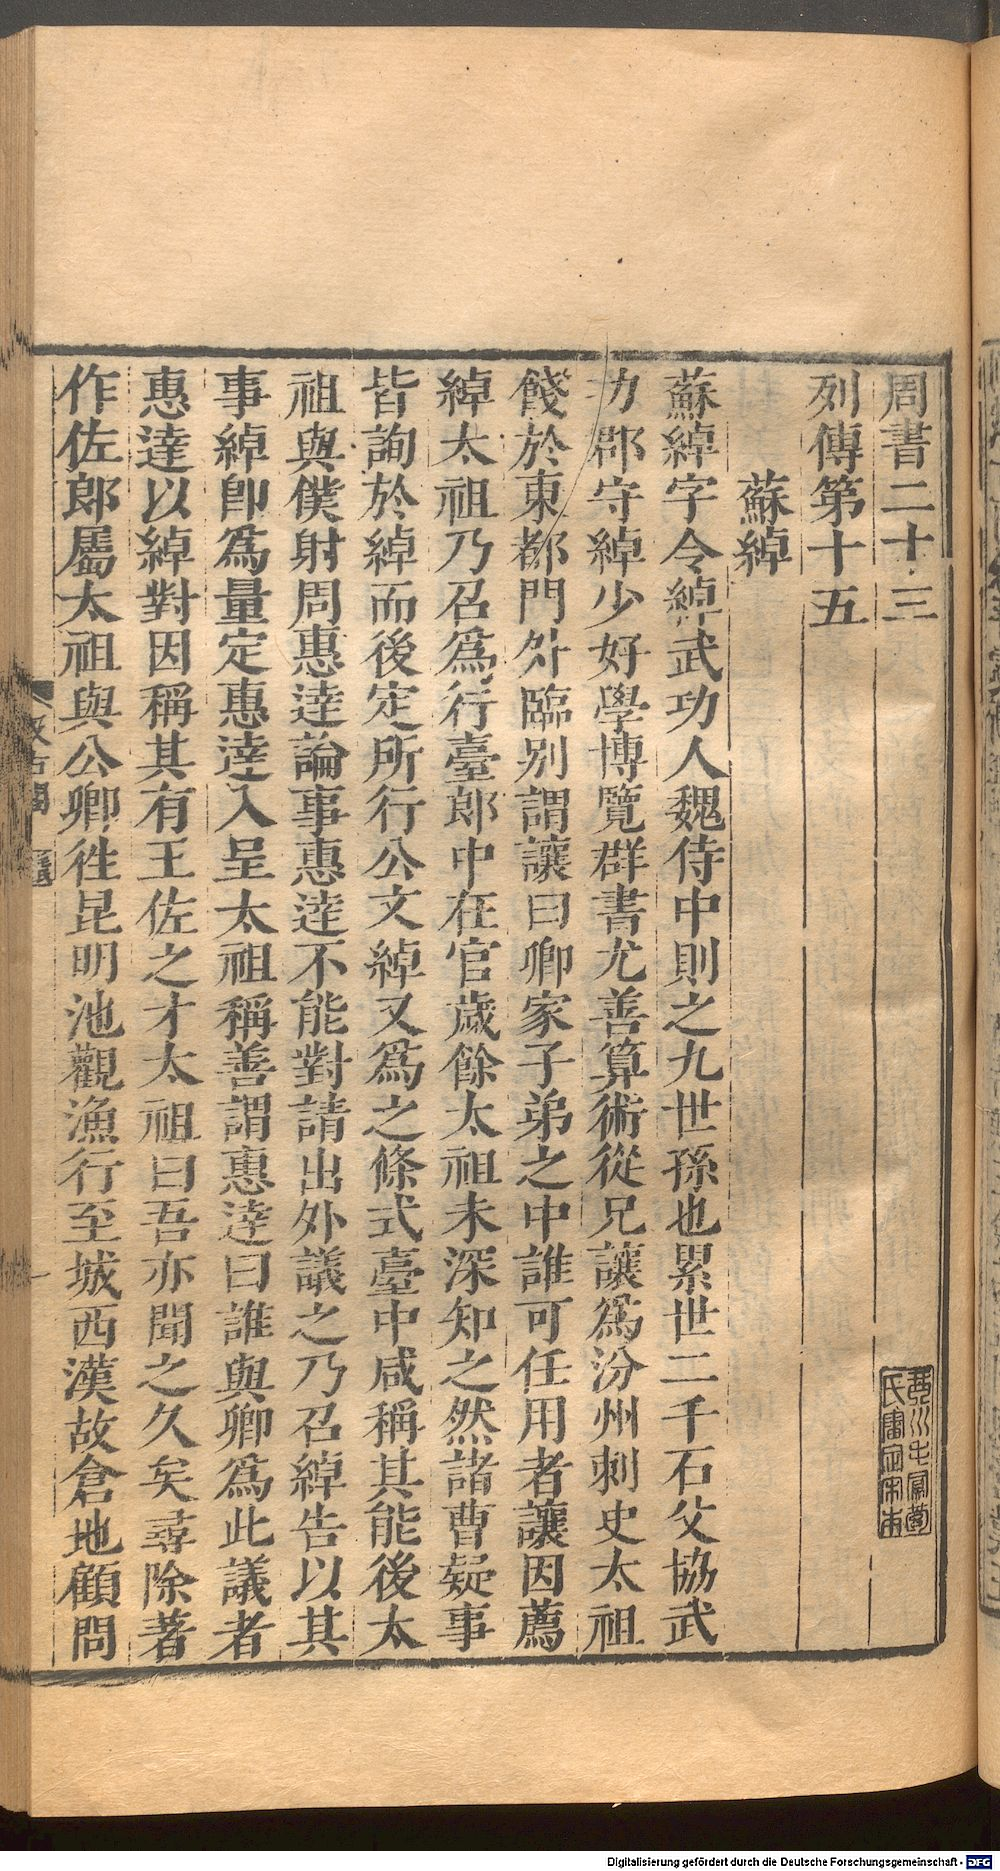 周書二十三
列傳第十五
蘇綽
蘇綽字令綽武功人魏侍中則之九世孫也累世二千石父協武
功郡守綽少好學博覽群書尤善算術從兄讓爲汾州刺史太祖
餞於東都門外臨別謂讓曰卿家子弟之中誰可任用者讓因薦
綽太祖乃召爲行臺郎中在官歲餘太祖未深知之然諸曹疑事
皆詢於綽而後定所行公文綽又爲之條式臺中咸稱其能後太
祖與僕射周惠達論事惠達不能對請出外議之乃召綽告以其
事綽卽爲量定惠達入呈太祖稱善謂惠達曰誰與卿爲此議者
惠達以綽對因稱其有王佐之才太祖曰吾亦聞之久矣尋除著
作佐郎屬太祖與公卿往昆明池觀漁行至城西漢故倉地顧問
汲古閣
Digitalisierung gefördert durch die Deutsche Forschungsgemeinschaft - DFG